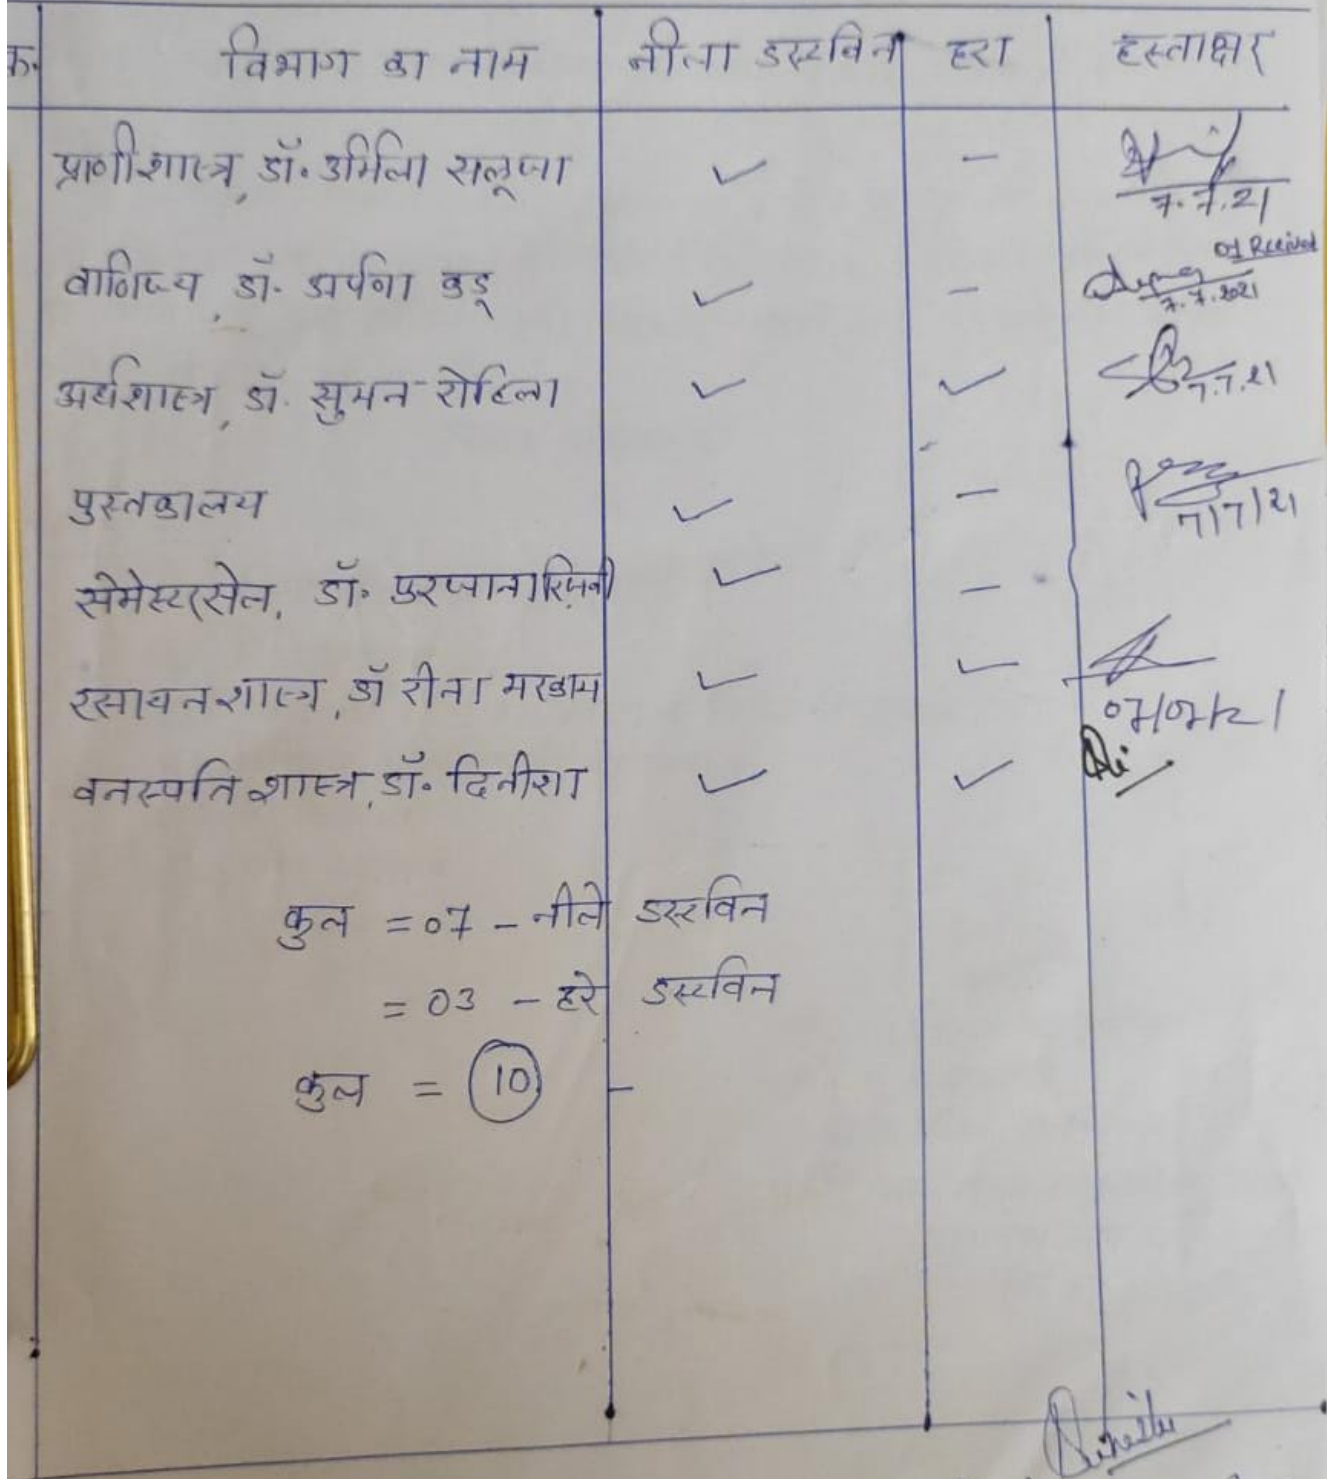 क्र. विभाग का नाम नीला डस्टविन हरा हस्ताक्षर
प्राणीशास्त्र, डॉ. उर्मिला सलूजा ✓ –
7.7.21
वाणिज्य, डॉ. अर्पणा ✓ – Received
7.7.2021
अर्थशास्त्र, डॉ. सुमन रोहिला ✓ ✓ 7.7.21
पुस्तकालय ✓ – 7/7/21
सेमेस्टरसेल, डॉ. ✓ –
रसायनशास्त्र, डॉ रीना मरकाम ✓ ✓
07/07/21
वनस्पति शास्त्र, डॉ. दिनीशा ✓ ✓
कुल = 07 – नीले डस्टविन
= 03 – हरे डस्टविन
कुल = 10 –